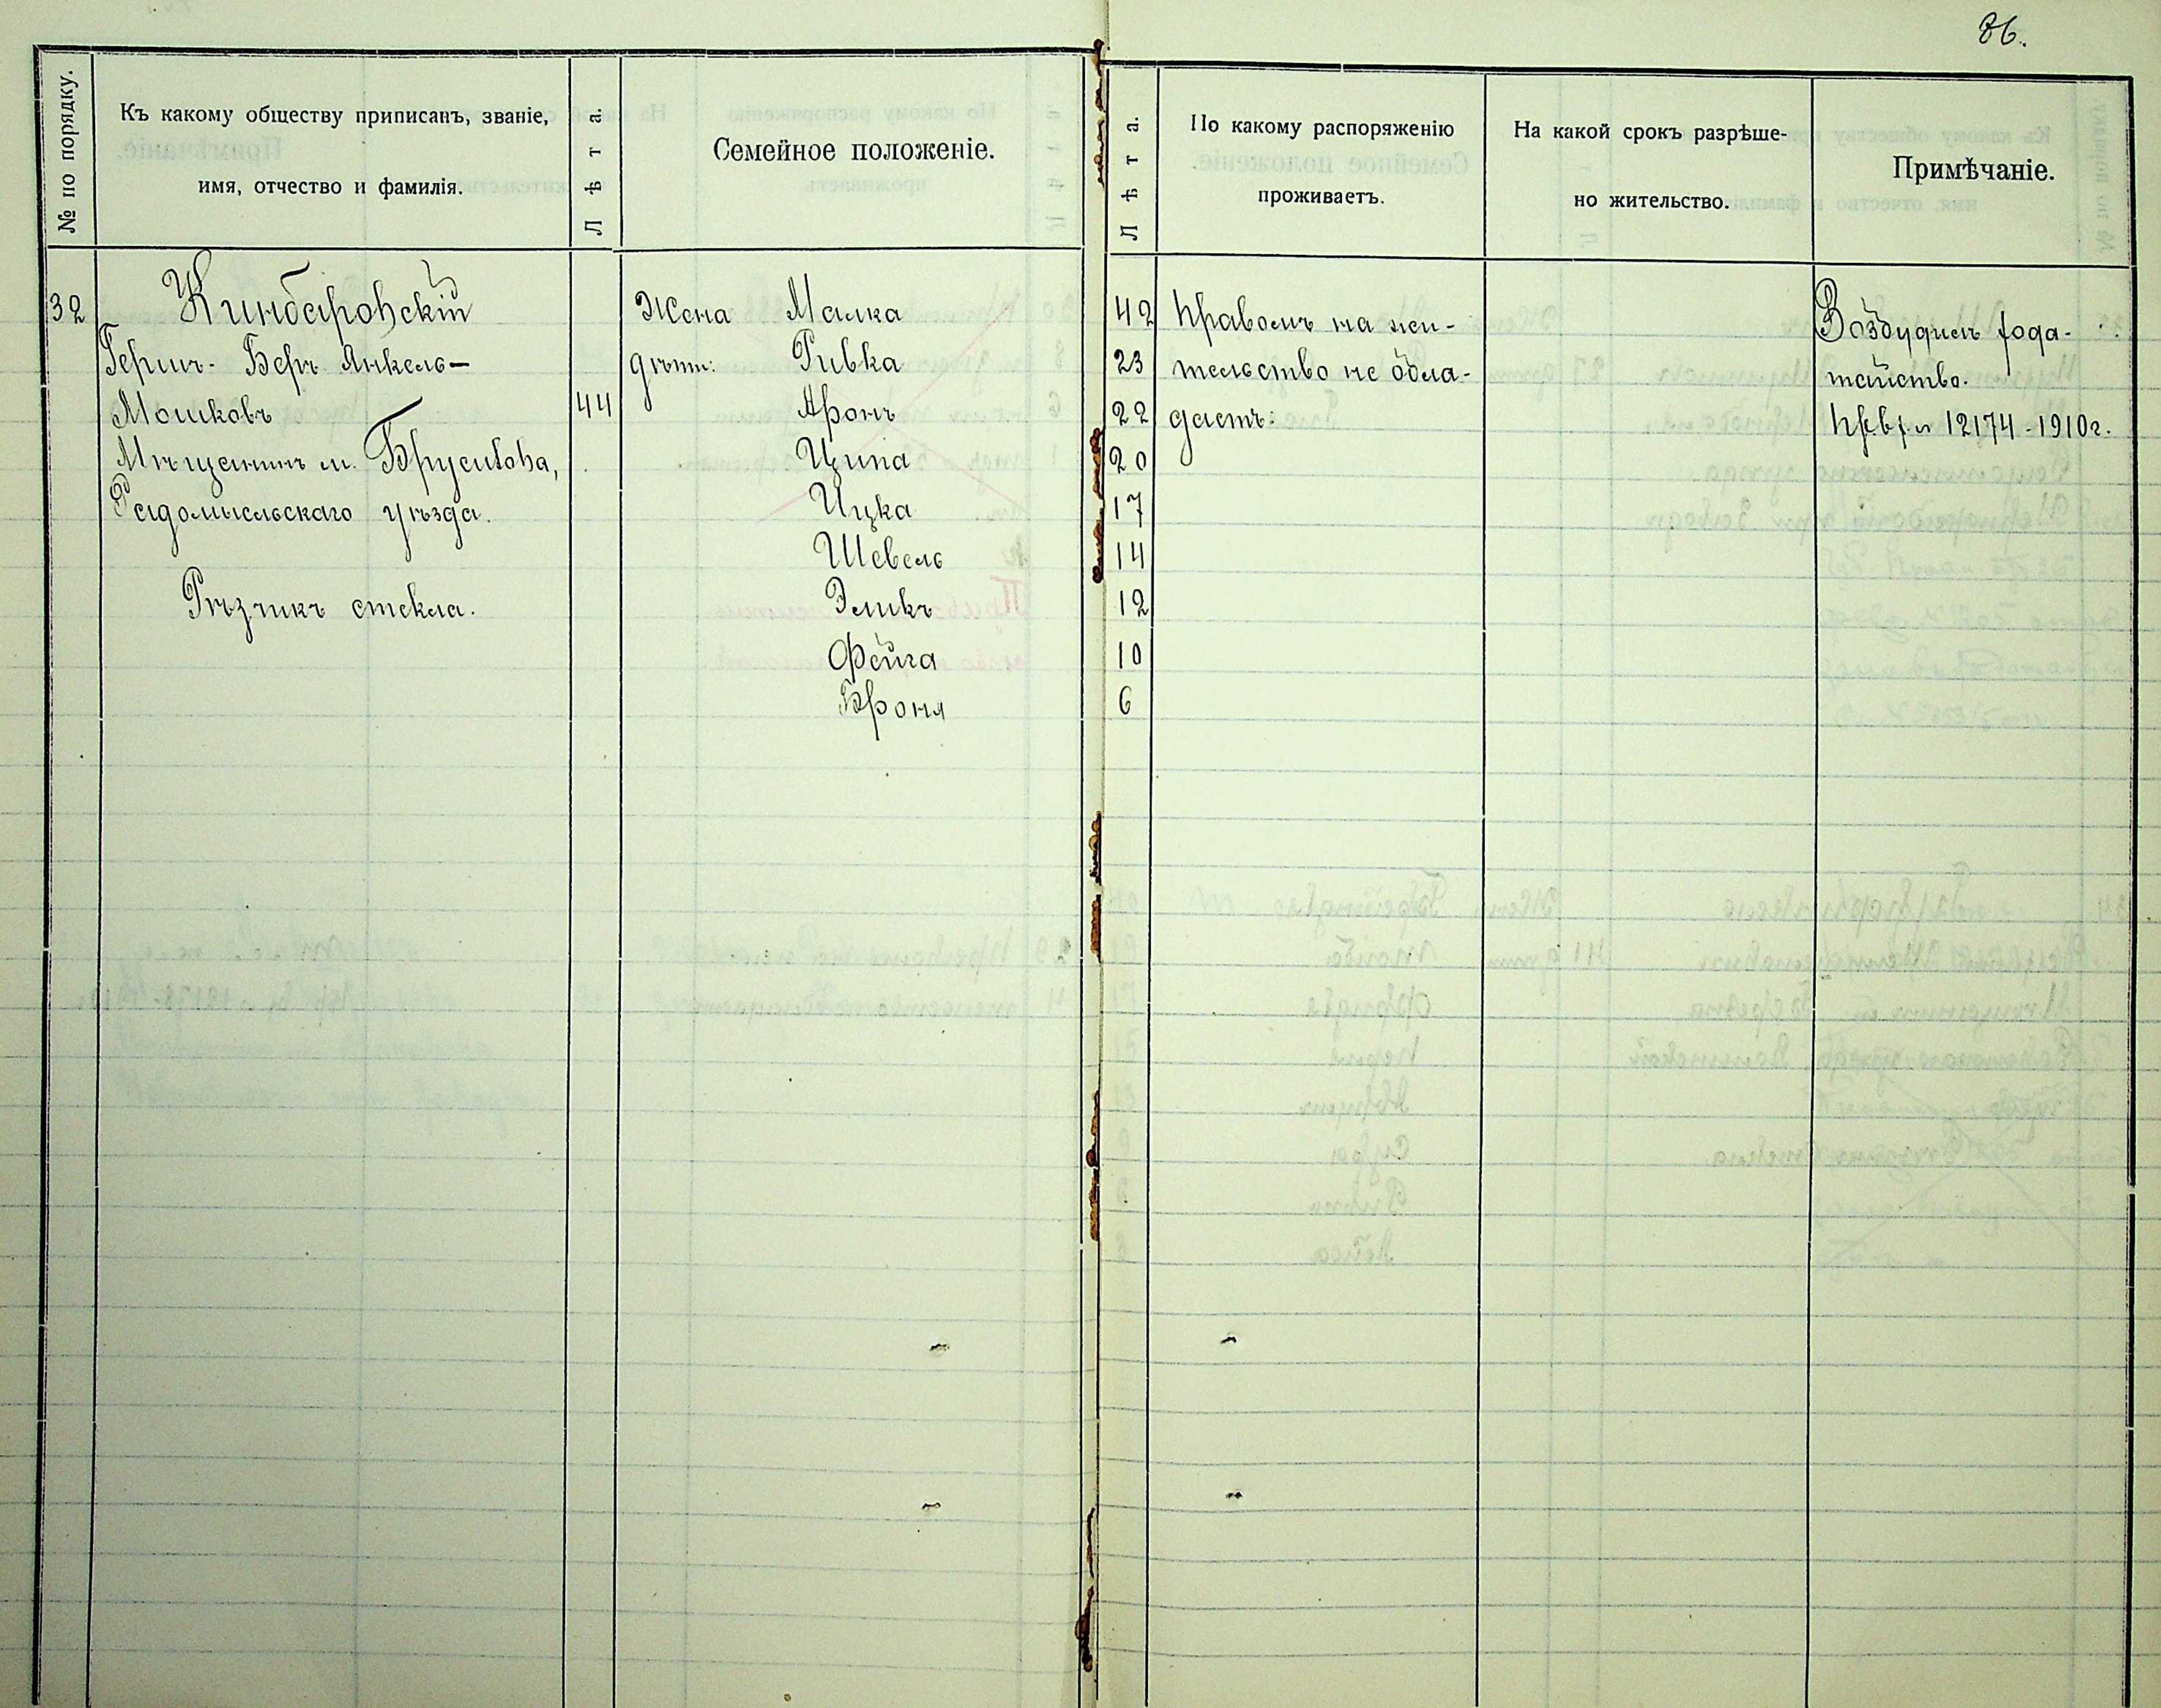 86.
№ по порядку.
Къ какому обществу приписанъ, званіе,
имя, отчество и фамилія.
Лѣта.
Семейное положеніе.
Лѣта.
По какому распоряженію
проживаетъ.
На какой срокъ разрѣше-
но жительство.
Примѣчаніе.
32
Кинбаровскій
Гершъ-Беръ Янкель-
Мошковъ 44
Мѣщанинъ м. Брусилова,
Радомысльскаго уѣзда.
Рѣзчикъ стекла.
Жена Малка 42
дѣти: Ривка 23
Аронъ 22
Ципа 20
Ицка 17
Шевель 14
Эликъ 12
Фейга 10
Броня 6
Правомъ на жи-
тельство не обла-
даетъ:
Возбудилъ хода-
тайство.
12174-1910г.